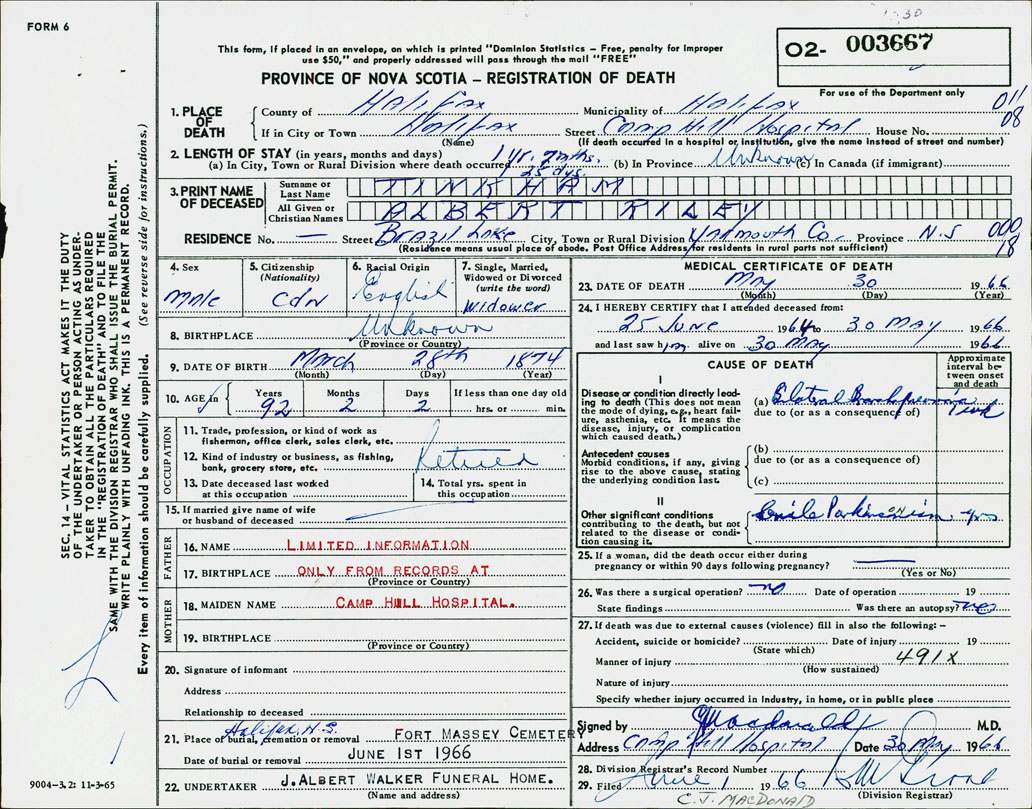 1330
FORM 6
This form, if placed in an envelope, on which is printed "Dominion Statistics – Free, penalty for improper
use $50," and properly addressed will pass through the mail "FREE"
PROVINCE OF NOVA SCOTIA – REGISTRATION OF DEATH
O2- 003667
For use of the Department only
1. PLACE OF DEATH
County of Halifax Municipality of Halifax 011
If in City or Town Halifax Street Camp Hill Hospital House No. 08
(Name) (If death occurred in a hospital or institution, give the name instead of street and number)
2. LENGTH OF STAY (in years, months and days)
(a) In City, Town or Rural Division where death occurred 1 yr. mths. 25 dys. (b) In Province Unknown (c) In Canada (if immigrant)
3. PRINT NAME OF DECEASED
Surname or Last Name TINKHAM
All Given or Christian Names ALBERT RILEY
RESIDENCE No. — Street Brazil Lake City, Town or Rural Division Yarmouth Co. Province N.S 000
(Residence means usual place of abode. Post Office Address for residents in rural parts not sufficient) 18
4. Sex
male
5. Citizenship
(Nationality)
Cdn
6. Racial Origin
English
7. Single, Married, Widowed or Divorced
(write the word)
Widower
8. BIRTHPLACE Unknown
(Province or Country)
9. DATE OF BIRTH March 28th 1874
(Month) (Day) (Year)
10. AGE in
Years Months Days If less than one day old
92 2 2 hrs. or min.
OCCUPATION
11. Trade, profession, or kind of work as
fisherman, office clerk, sales clerk, etc.
12. Kind of industry or business, as fishing,
bank, grocery store, etc. Retired
13. Date deceased last worked
at this occupation
14. Total yrs. spent in
this occupation
15. If married give name of wife
or husband of deceased
FATHER
16. NAME LIMITED INFORMATION
17. BIRTHPLACE ONLY FROM RECORDS AT
(Province or Country)
MOTHER
18. MAIDEN NAME CAMP HILL HOSPITAL.
19. BIRTHPLACE
(Province or Country)
20. Signature of informant
Address
Relationship to deceased
21. Place of burial, cremation or removal Halifax, N.S. FORT MASSEY CEMETERY
Date of burial or removal JUNE 1ST 1966
22. UNDERTAKER J. ALBERT WALKER FUNERAL HOME.
(Name and address)
MEDICAL CERTIFICATE OF DEATH
23. DATE OF DEATH May 30 1966
(Month) (Day) (Year)
24. I HEREBY CERTIFY that I attended deceased from:
25 June 1964 to 30 May 1966
and last saw him alive on 30 May 1966
CAUSE OF DEATH
Approximate interval between onset and death
I
Disease or condition directly leading
to death (This does not mean
the mode of dying, e.g., heart failure,
asthenia, etc. It means the
disease, injury, or complication
which caused death.)
(a) Bilateral Bronchopneumonia 1 wk
due to (or as a consequence of)
Antecedent causes
Morbid conditions, if any, giving
rise to the above cause, stating
the underlying condition last.
(b)
due to (or as a consequence of)
(c)
II
Other significant conditions
contributing to the death, but not
related to the disease or condition
causing it.
Senile Parkinsonism yrs
25. If a woman, did the death occur either during
pregnancy or within 90 days following pregnancy?
(Yes or No)
26. Was there a surgical operation? no Date of operation 19
State findings Was there an autopsy?
27. If death was due to external causes (violence) fill in also the following: –
Accident, suicide or homicide? Date of injury 19
(State which)
Manner of injury 491X
(How sustained)
Nature of injury
Specify whether injury occurred in industry, in home, or in public place
Signed by Macdonald M.D.
Address Camp Hill Hospital Date 30 May 1966
28. Division Registrar's Record Number
29. Filed June 1 1966
(Division Registrar)
C.J. MACDONALD
SEC. 14 – VITAL STATISTICS ACT MAKES IT THE DUTY
OF THE UNDERTAKER OR PERSON ACTING AS UNDERTAKER
TO OBTAIN ALL THE PARTICULARS REQUIRED
IN THE "REGISTRATION OF DEATH" AND TO FILE THE
SAME WITH THE DIVISION REGISTRAR WHO SHALL ISSUE THE BURIAL PERMIT.
WRITE PLAINLY WITH UNFADING INK. THIS IS A PERMANENT RECORD.
Every item of information should be carefully supplied. (See reverse side for instructions.)
9004-3.2: 11-3-65